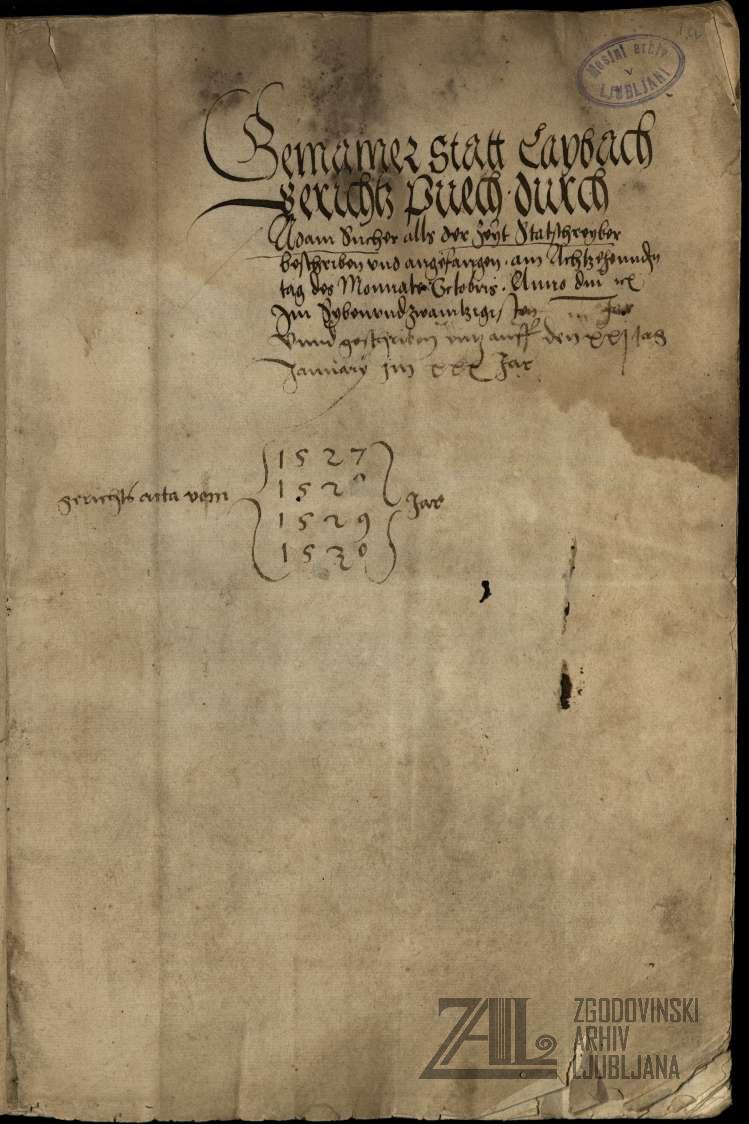 Mestni arhiv
v
LJUBLJANI
Gemainer Statt Laybach
gerichtz Puech durch
Adam Sucher alls der Zeyt Statschreyber
beschriben und angefangen. am Achtzehennden
tag des Monnats Octobris. Anno dm
Im Sybenundzwaintzigisten Jar
Unnd geschriben untz auff den xxj tag
January im xxx Jar
gerichts acta vom
1527
1528
1529
1530
Jar
ZAL
ZGODOVINSKI
ARHIV
LJUBLJANA